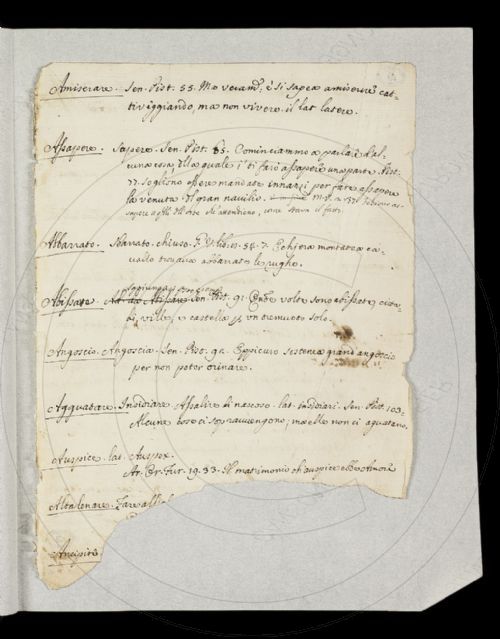 Amiserare. Sen. Pist. 55. Ma veram. e' si sapea amiserare cat-
tiveggiando, ma non vivere. il lat. latere.
Assapere. Sapere. Sen. Pist. 65. Cominciammo a parlare d'al-
cuna cosa, della quale i' ti farò assapere una parte. Pist.
77. Sogliono essere mandate innanzi per fare assapere
la venuta del gran navilio.
Abbarrato. Sbarrato. chiuso. 7. Eschiera montata a ca-
vallo trovava abbarrate le rughe.
Abissare. Sen. Pist. 91. volte sono abissate citta-
di, ville, e castella p un tremuoto solo.
Angoscio. Angoscia. Sen. Pist. 92. Eppicuro sostenea grand'angoscio
per non poter orinare.
Agguatare. Insidiare. Assalire di nascoso. lat. insidiari. Sen. Pist. 103.
Alcune cose ci sopravvengono; ma elle non ci aguatano.
Auspice. lat. Auspex.
Ar. Or. Fur. 19. 33. Il matrimonio ch'auspice ebbe Amore
Altalenare. Fare all'al
Ancipite